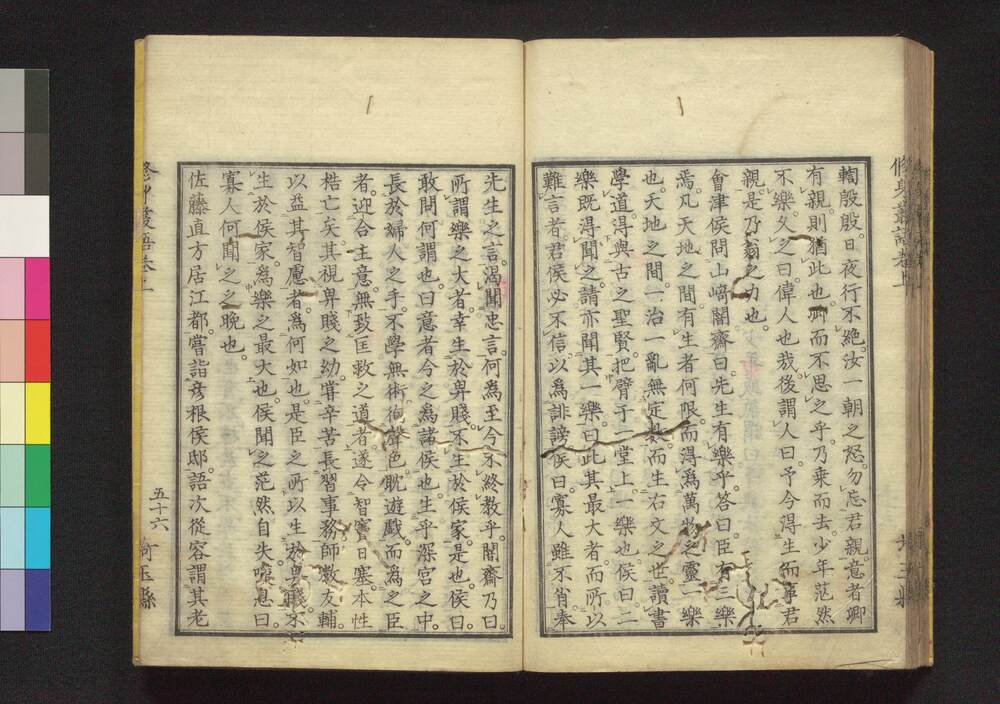 輷殷殷。日夜行不絶。汝一朝之怒。勿忘君親。意者卿
有親。則猶此也。而不思之乎。乃棄而去。少年茫然
不樂。久之曰。偉人也哉。後謂人曰。予今得生而事君
親。是乃翁之力也。
會津侯問山﨑闇齋曰。先生有樂乎。答曰。臣有三樂
焉。凡天地之間。有生者何限。而得爲萬物之靈。一樂
也。天地之間。一治一亂無定數。而生右文之世。讀書
學道。得與古之聖賢。把臂于一堂上。一樂也。侯曰。二
樂既得聞之。請亦聞其一樂。曰。此其最大者。而所以
難言者。君侯必不信。以爲誹謗。侯曰。寡人雖不肖。奉
先生之言。渴聞忠言。何爲至今不終教乎。闇齋乃曰。
所謂樂之大者。幸生於卑賤。不生於侯家。是也。侯曰。
敢問何謂也。曰。意者今之爲諸侯也。生乎深宮之中。
長於婦人之手。不學無術。徇聲色。耽遊戲。而爲之臣
者。迎合主意。無致匡救之道者。遂令智竇日塞。本性
梏亡矣。其視卑賤之幼嘗辛苦。長習事務。師教友輔。
以益其智慮者。爲何如也。是臣之所以生於卑賤。不
生於侯家。爲樂之最大也。侯聞之茫然自失。喟息曰。
寡人何聞之之晩也。
佐藤直方居江都。嘗詣彦根侯邸。語次從容謂其老
五十六